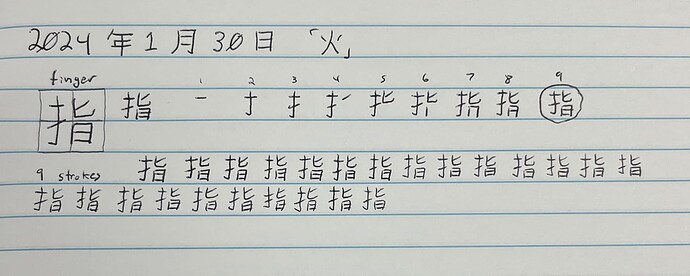 2024年1月30日「火」
finger 1 2 3 4 5 6 7 8 9
指 指 一 扌 指
9 strokes 指 指 指 指 指 指 指 指 指 指 指 指 指 指
指 指 指 指 指 指 指 指 指 指